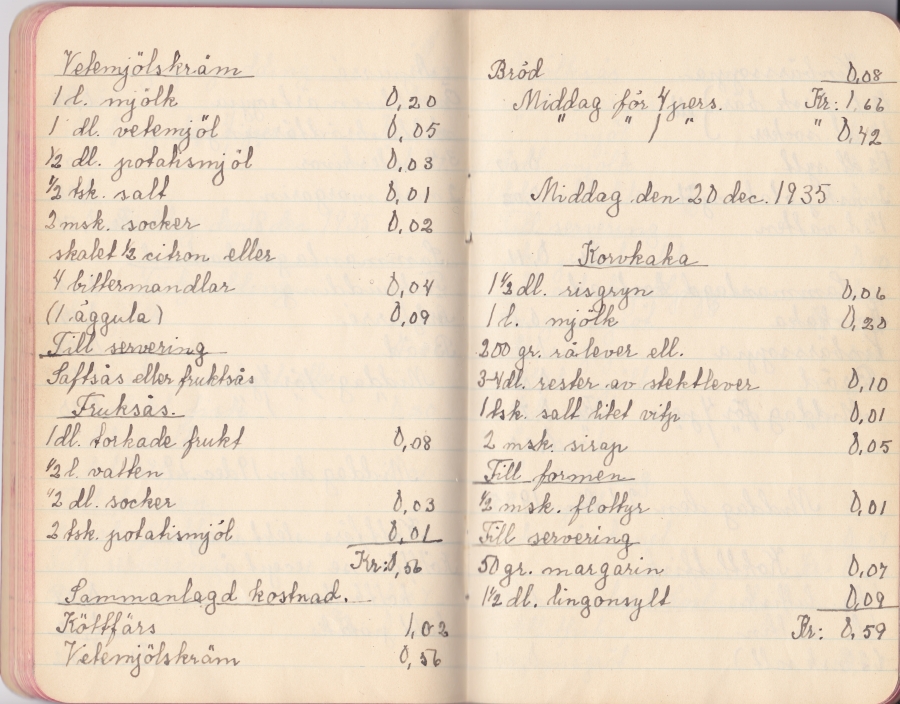 Vetemjölskräm
1 l. mjölk 0,20
1 dl. vetemjöl 0,05
1/2 dl. potatismjöl 0,03
1/2 tsk. salt 0,01
2 msk. socker 0,02
skalet 1/2 citron eller
4 bittermandlar 0,04
(1 äggula) 0,09
Till servering
Saftsås eller fruktsås
Fruksås.
1 dl. torkade frukt 0,08
1/2 l. vatten
1/2 dl. socker 0,03
2 tsk. potatismjöl 0,01
Kr: 0,56
Sammanlagd kostnad.
Köttfärs 1,02
Vetemjölskräm 0,56
Bröd 0,08
Middag för 4 pers. Kr: 1,66
" " 1 " " 0,42
Middag den 20 dec. 1935
Korvkaka
1 1/2 dl. risgryn 0,06
1 l. mjölk 0,20
200 gr. rålever ell.
3-4 dl. rester av stektlever 0,10
1 tsk. salt litet vitp 0,01
2 msk. sirap 0,05
Till formen
1/2 msk. flottyr 0,01
Till servering
50 gr. margarin 0,07
1 1/2 dl. lingonsylt 0,09
Kr: 0,59